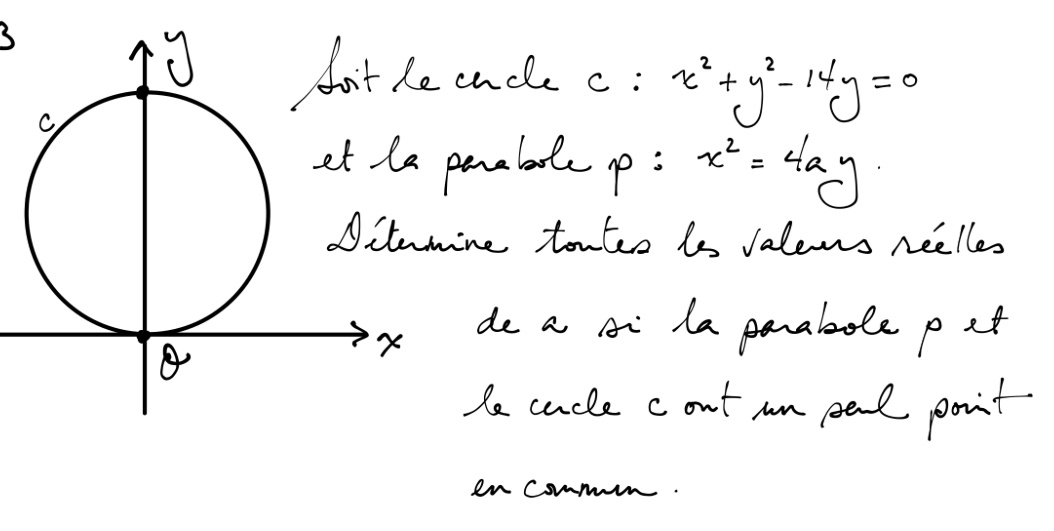 3
y
c
x
O
Soit le cercle c : x² + y² - 14y = 0
et la parabole p : x² = 4ay.
Détermine toutes les valeurs réelles
de a si la parabole p et
le cercle c ont un seul point
en commun.